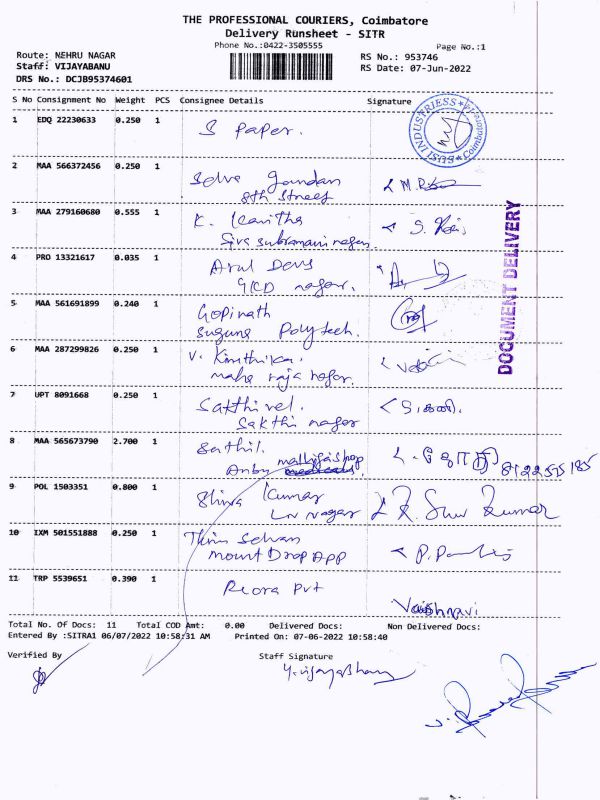 THE PROFESSIONAL COURIERS, Coimbatore
Delivery Runsheet - SITR
Phone No.:0422-3505555
Page No.:1
Route: NEHRU NAGAR
Staff: VIJAYABANU
DRS No.: DCJB95374601
RS No.: 953746
RS Date: 07-Jun-2022
S No Consignment No Weight PCS Consignee Details Signature
1 EDQ 22230633 0.250 1 S paper.
2 MAA 566372456 0.250 1 Selva Goundan
8th Street
3 MAA 279160680 0.555 1 K. Kavitha
Siva subramani nagar
4 PRO 13321617 0.035 1 Arul Devs
GKD nagar.
5 MAA 561691899 0.240 1 Gopinath
suguna Polytech.
6 MAA 287299826 0.250 1 V. Kiruthika.
maha raja nagar.
7 UPT 8091668 0.250 1 Sakthivel.
Sakthi nagar
8 MAA 565673790 2.700 1 Sathil.
Anbu
9 POL 1503351 0.800 1 Shiva Kumar
LN Nagar
10 IXM 501551888 0.250 1 Selvan
Mount Drop App
11 TRP 5539651 0.390 1 Reora Pvt
Vaishnavi.
DOCUMENT DELIVERY
Total No. Of Docs: 11 Total COD Amt: 0.00 Delivered Docs: Non Delivered Docs:
Entered By :SITRA1 06/07/2022 10:58:31 AM Printed On: 07-06-2022 10:58:40
Verified By Staff Signature